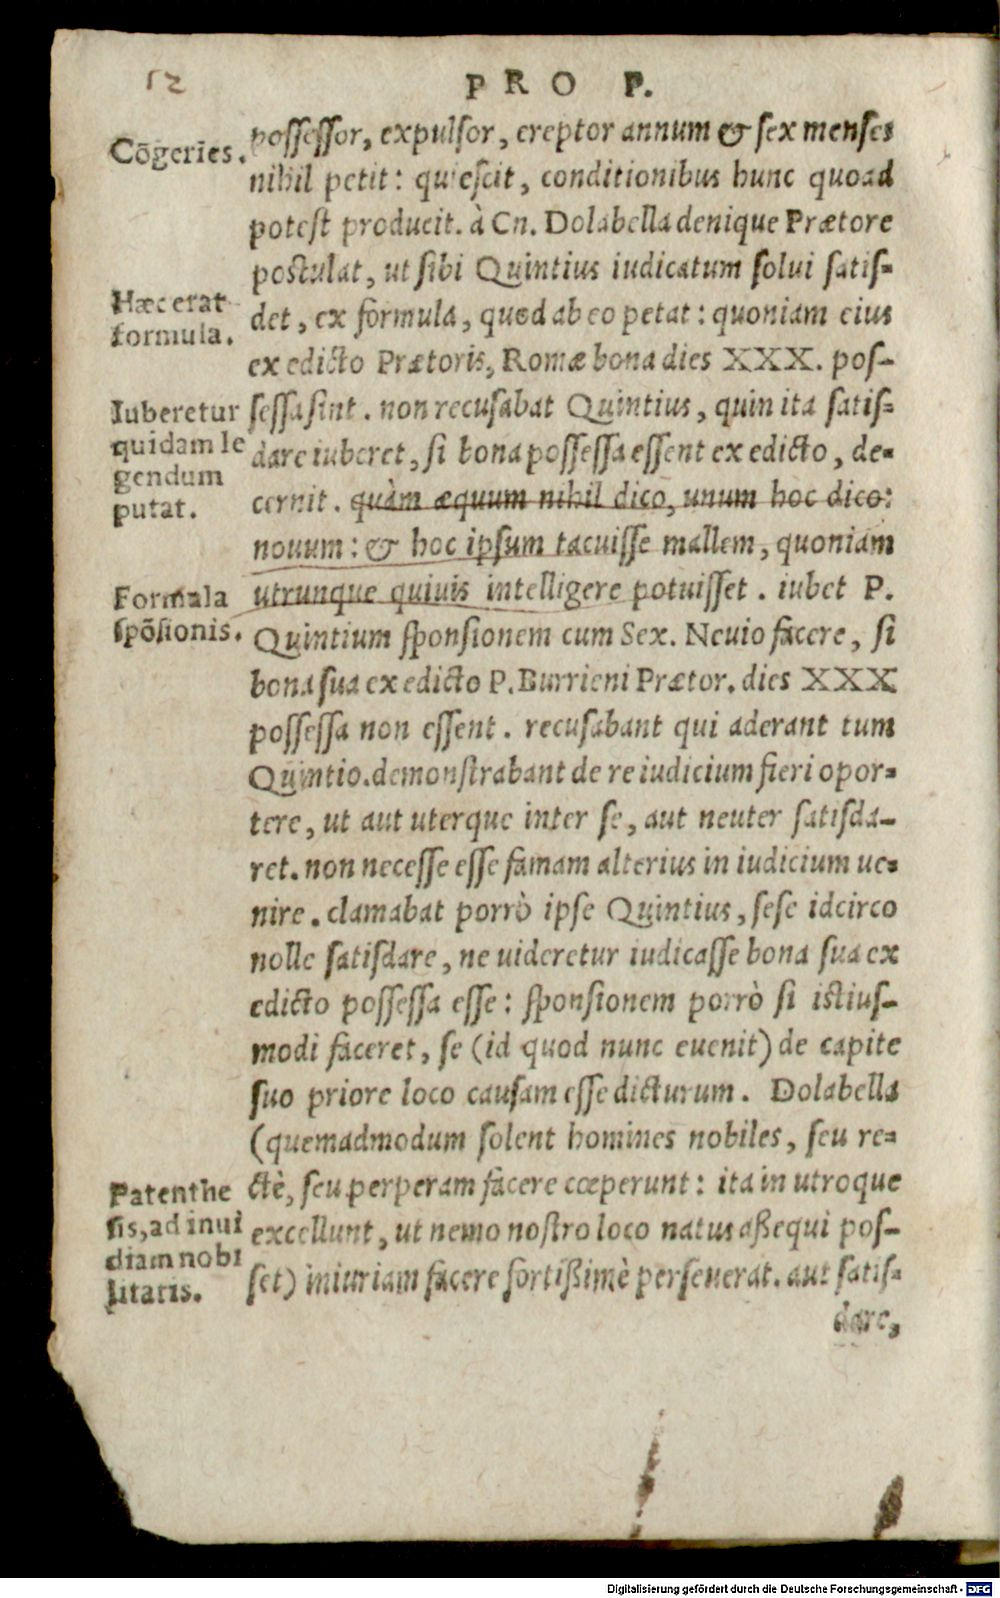 12
PRO P.
Cõgeries.
possessor, expulsor, ereptor annum & sex menses
nihil petit: quiescit, conditionibus hunc quoad
potest producit. à Cn. Dolabella denique Prætore
postulat, ut sibi Quintius iudicatum solui satis-
Hæc erat
formula.
det, ex formula, quod ab eo petat: quoniam eius
ex edicto Prætoris, Romæ bona dies XXX. pos-
Iuberetur
quidam le
gendum
putat.
sessa sint. non recusabat Quintius, quin ita satis-
dare iuberet, si bona possessa essent ex edicto, de-
cernit. quàm æquum nihil dico, unum hoc dico:
nouum: & hoc ipsum tacuisse mallem, quoniam
Formula
spõsionis.
utrunque quiuis intelligere potuisset. iubet P.
Quintium sponsionem cum Sex. Neuio facere, si
bona sua ex edicto P. Burrieni Prætor. dies XXX
possessa non essent. recusabant qui aderant tum
Quintio. demonstrabant de re iudicium fieri opor-
tere, ut aut uterque inter se, aut neuter satisda-
ret. non necesse esse famam alterius in iudicium ue-
nire. clamabat porrò ipse Quintius, sese idcirco
nolle satisdare, ne uideretur iudicasse bona sua ex
edicto possessa esse: sponsionem porrò si istius-
modi faceret, se (id quod nunc euenit) de capite
suo priore loco causam esse dicturum. Dolabella
(quemadmodum solent homines nobiles, seu re-
Patenthe
sis, ad inui
diam nobi
litatis.
ctè, seu perperam facere cœperunt: ita in utroque
excellunt, ut nemo nostro loco natus aßequi pos-
set) iniuriam facere fortißimè perseuerat. aut satis-
dare,
Digitalisierung gefördert durch die Deutsche Forschungsgemeinschaft - DFG